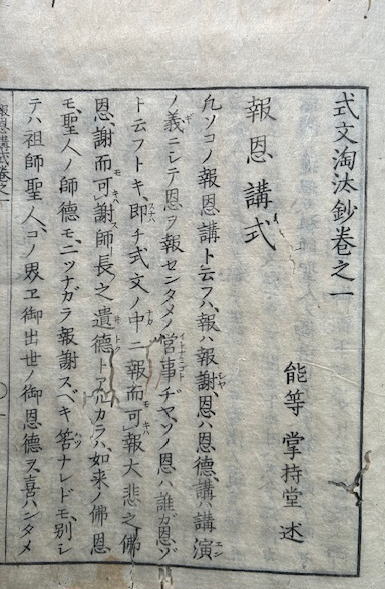 式文淘汰鈔巻之一
能等 掌持堂 述
報恩講式
凡ソコノ報恩講ト云フハ、報ハ報謝、恩ハ恩德、講ハ講演
ノ義ニシテ恩ヲ報センタメノ営事ヂヤ、ソノ恩ハ誰ガ恩ゾ
ト云フトキ、即チ式文ノ中ニ報而可報大悲之佛
恩、謝而可謝師長之遺德トアル、カラハ如来ノ佛恩
モ、聖人ノ師德モ、ニツナガラ報謝スベキ筈ナレドモ、別シ
テハ祖師聖人、コノ界エ御出世ノ御恩德ヲ喜ハンタメ
報恩講式巻之一